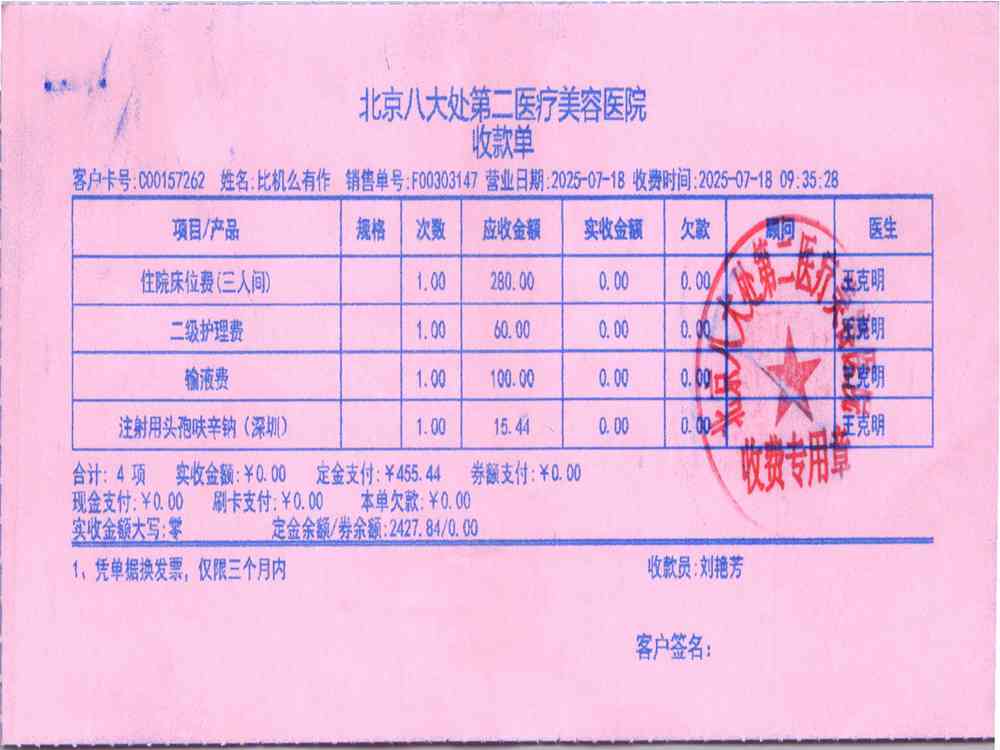 北京八大处第二医疗美容医院
收款单
客户卡号:C00157262 姓名:比机么有作 销售单号:F00303147 营业日期:2025-07-18 收费时间:2025-07-18 09:35:28
项目/产品 规格 次数 应收金额 实收金额 欠款 顾问 医生
住院床位费(三人间) 1.00 280.00 0.00 0.00 王克明
二级护理费 1.00 60.00 0.00 0.00 王克明
输液费 1.00 100.00 0.00 0.00 王克明
注射用头孢呋辛钠(深圳) 1.00 15.44 0.00 0.00 王克明
北京八大处第二医疗美容医院
收费专用章
合计: 4 项 实收金额:¥0.00 定金支付:¥455.44 券额支付:¥0.00
现金支付:¥0.00 刷卡支付:¥0.00 本单欠款:¥0.00
实收金额大写:零 定金余额/券余额:2427.84/0.00
1、凭单据换发票,仅限三个月内 收款员:刘艳芳
客户签名: